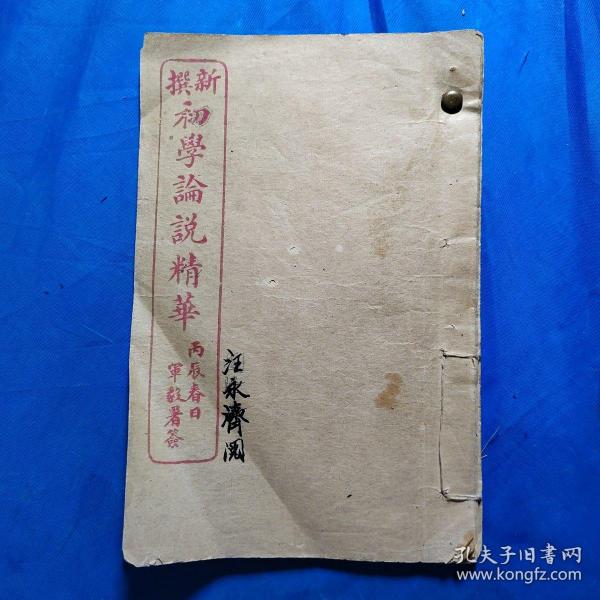 新撰
初學論説精華
丙辰春日
軍毅署簽
汪永濟閲
孔夫子旧书网
www.kongfz.com